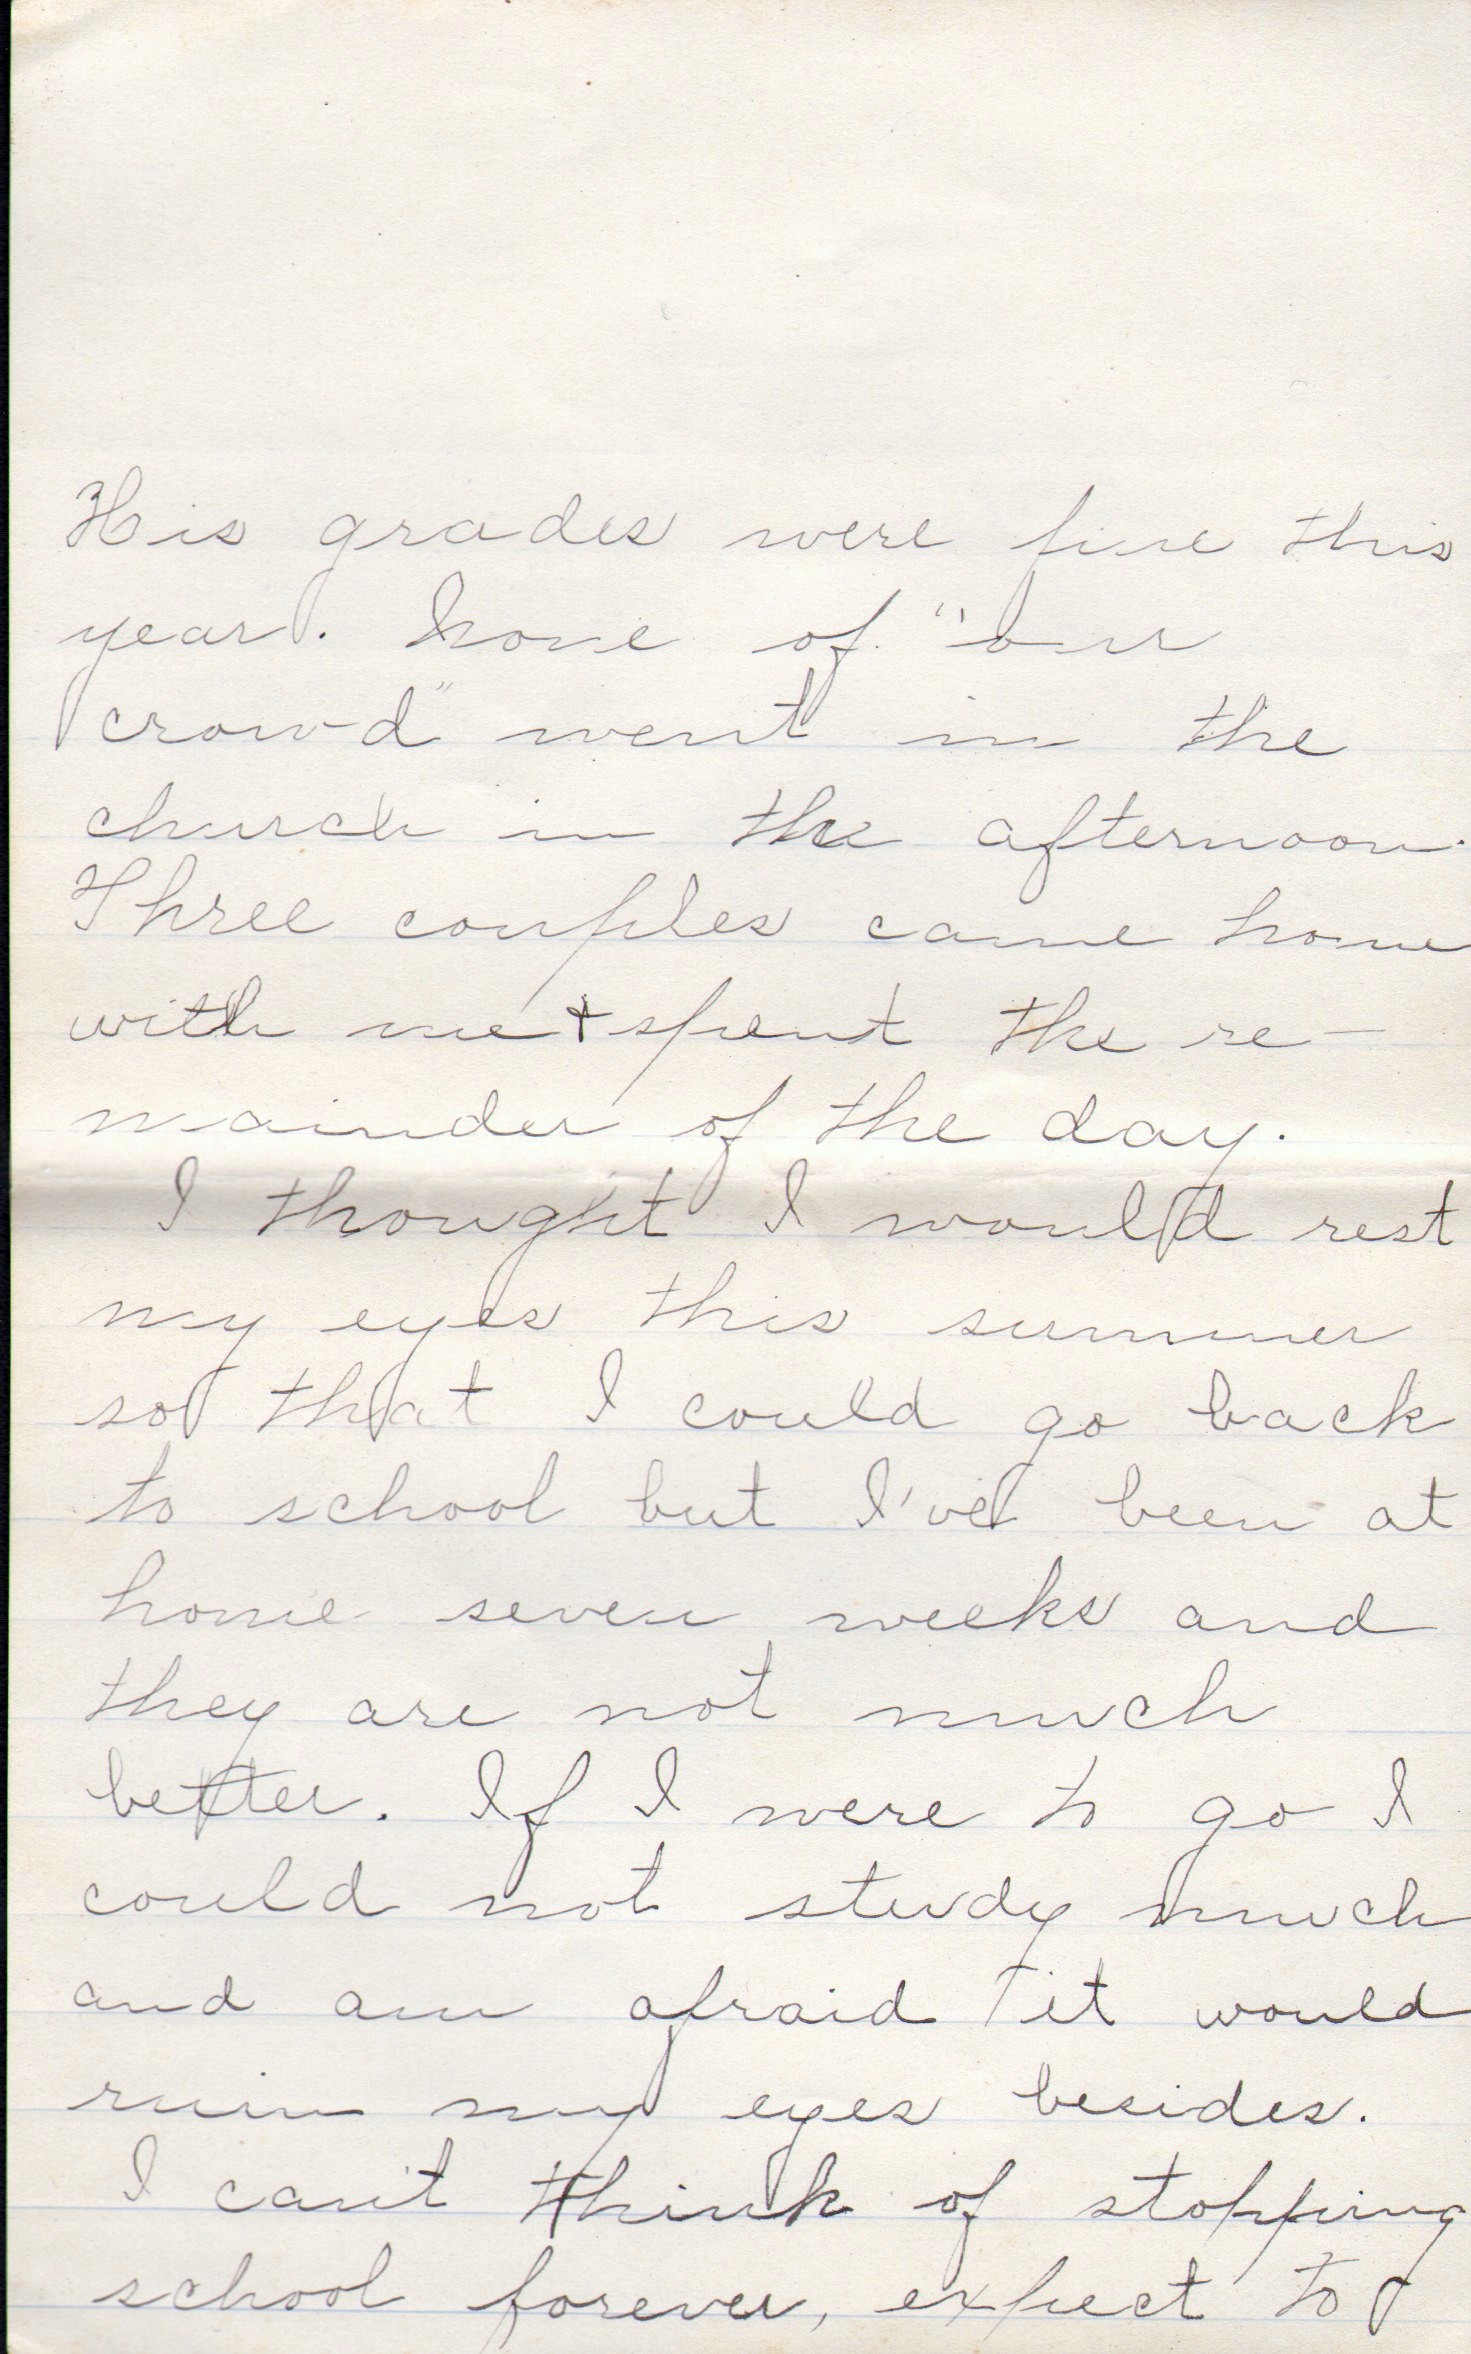 His grades were fine this
year. None of "our
crowd" went in the
church in the afternoon.
Three couples came home
with me + spent the re-
mainder of the day.
I thought I would rest
my eyes this summer
so that I could go back
to school but I've been at
home seven weeks and
they are not much
better. If I were to go I
could not study much
and am afraid it would
ruin my eyes besides.
I can't think of stopping
school forever, expect to